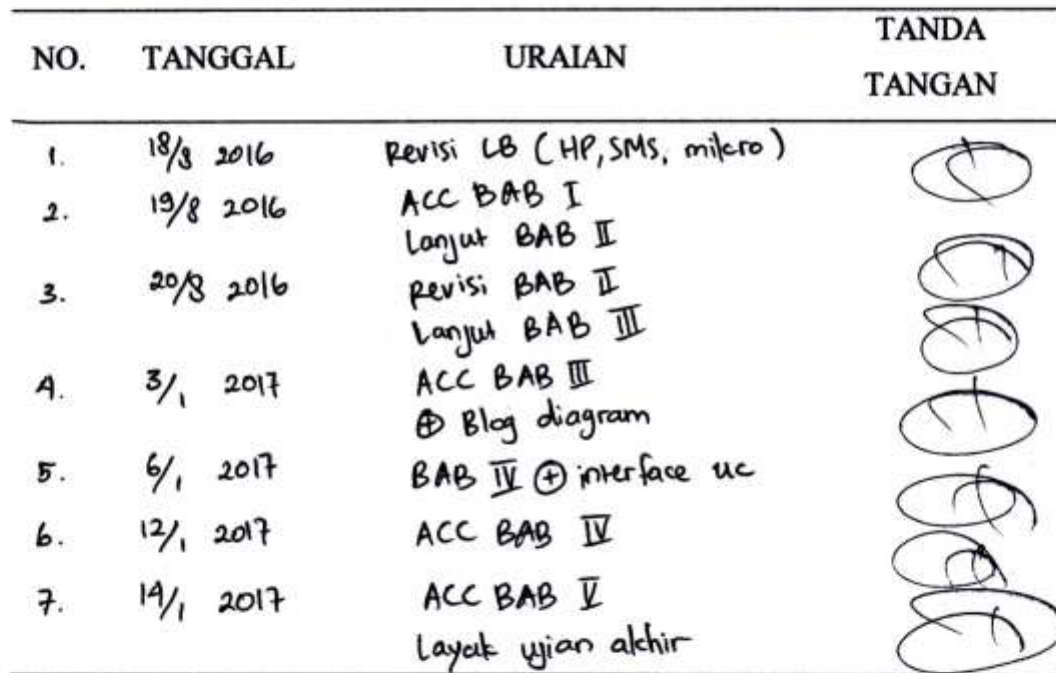 NO. TANGGAL URAIAN TANDA TANGAN
1. 18/8 2016 Revisi LB (HP, SMS, mikro)
2. 19/8 2016 ACC BAB I
Lanjut BAB II
3. 20/8 2016 Revisi BAB II
Lanjut BAB III
4. 3/1 2017 ACC BAB III
⊕ Blog diagram
5. 6/1 2017 BAB IV ⊕ interface uc
6. 12/1 2017 ACC BAB IV
7. 14/1 2017 ACC BAB V
Layak ujian akhir